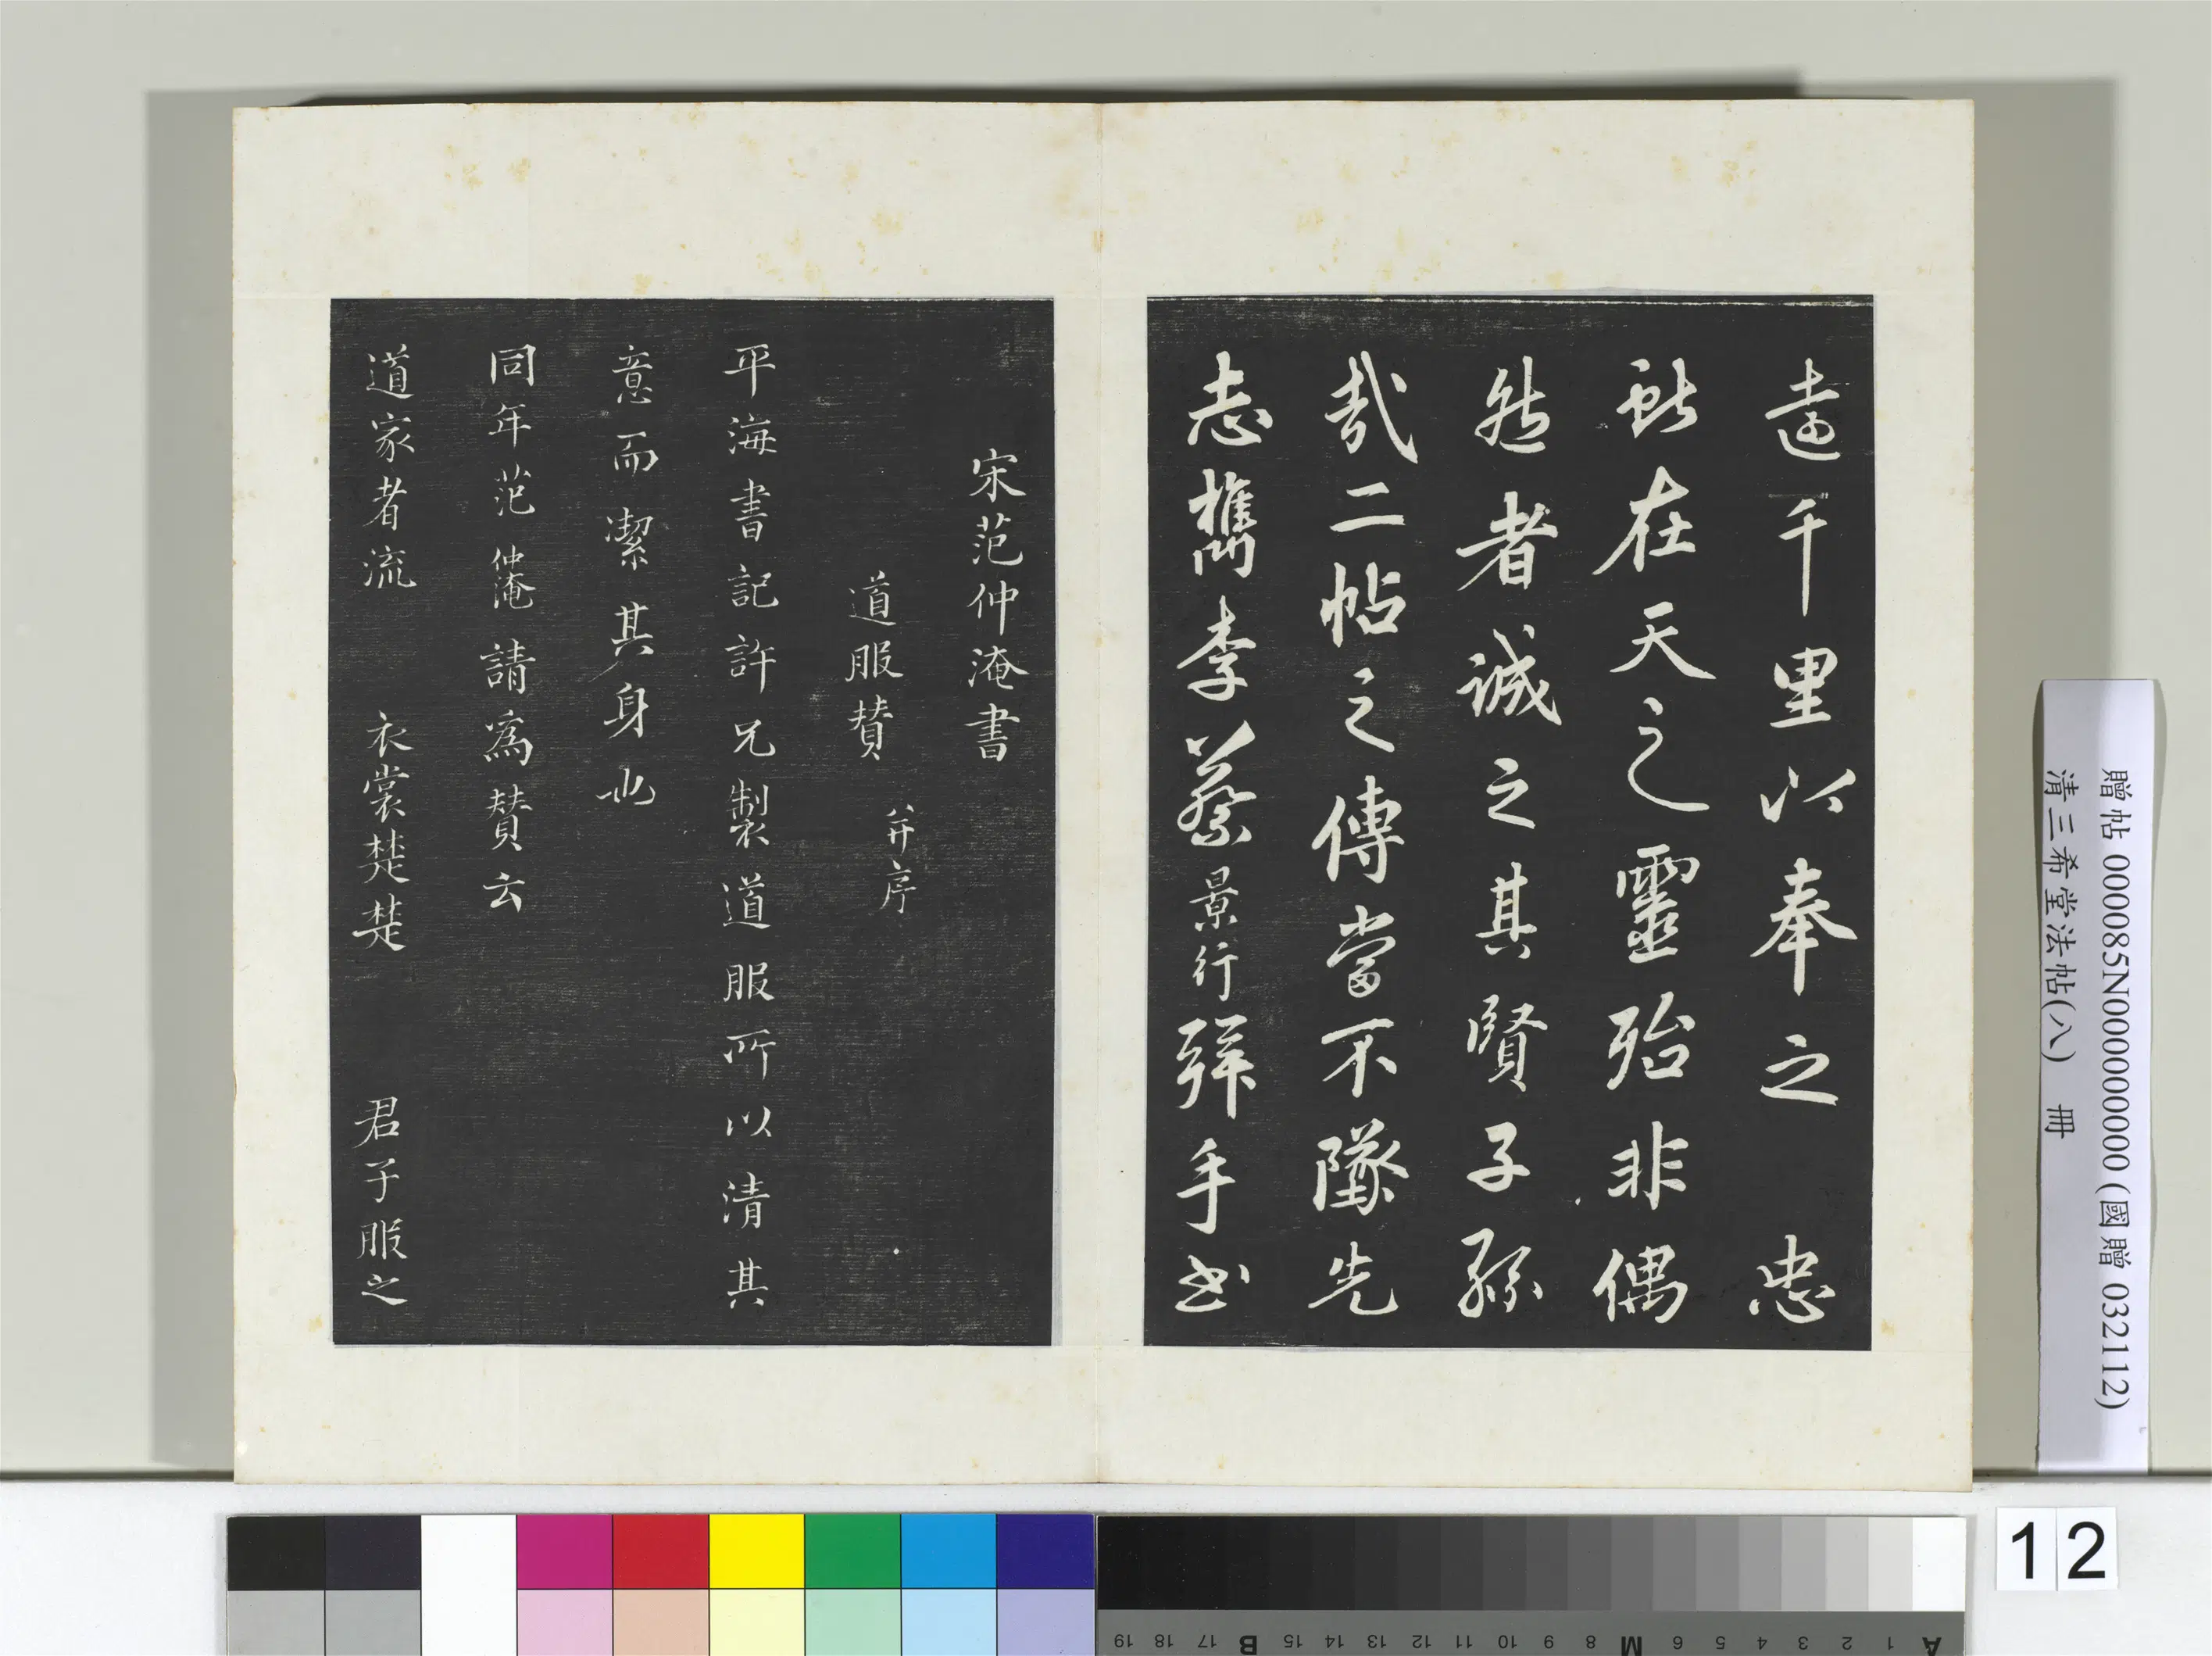 遠千里以奉之 忠
獻在天之靈殆非偶
然者誠之其賢子孫
哉二帖之傳當不墜先
志檇李蔡景行拜手书
宋范仲淹書
道服贊 并序
平海書記許兄製道服所以清其
意而潔其身也
同年范仲淹請為贊云
道家者流 衣裳楚楚 君子服之
贈帖 000085N000000000 (國贈 032112)
清三希堂法帖(八) 冊
12
A 1 2 3 4 5 6 M 8 9 10 11 12 13 14 15 B 17 18 19